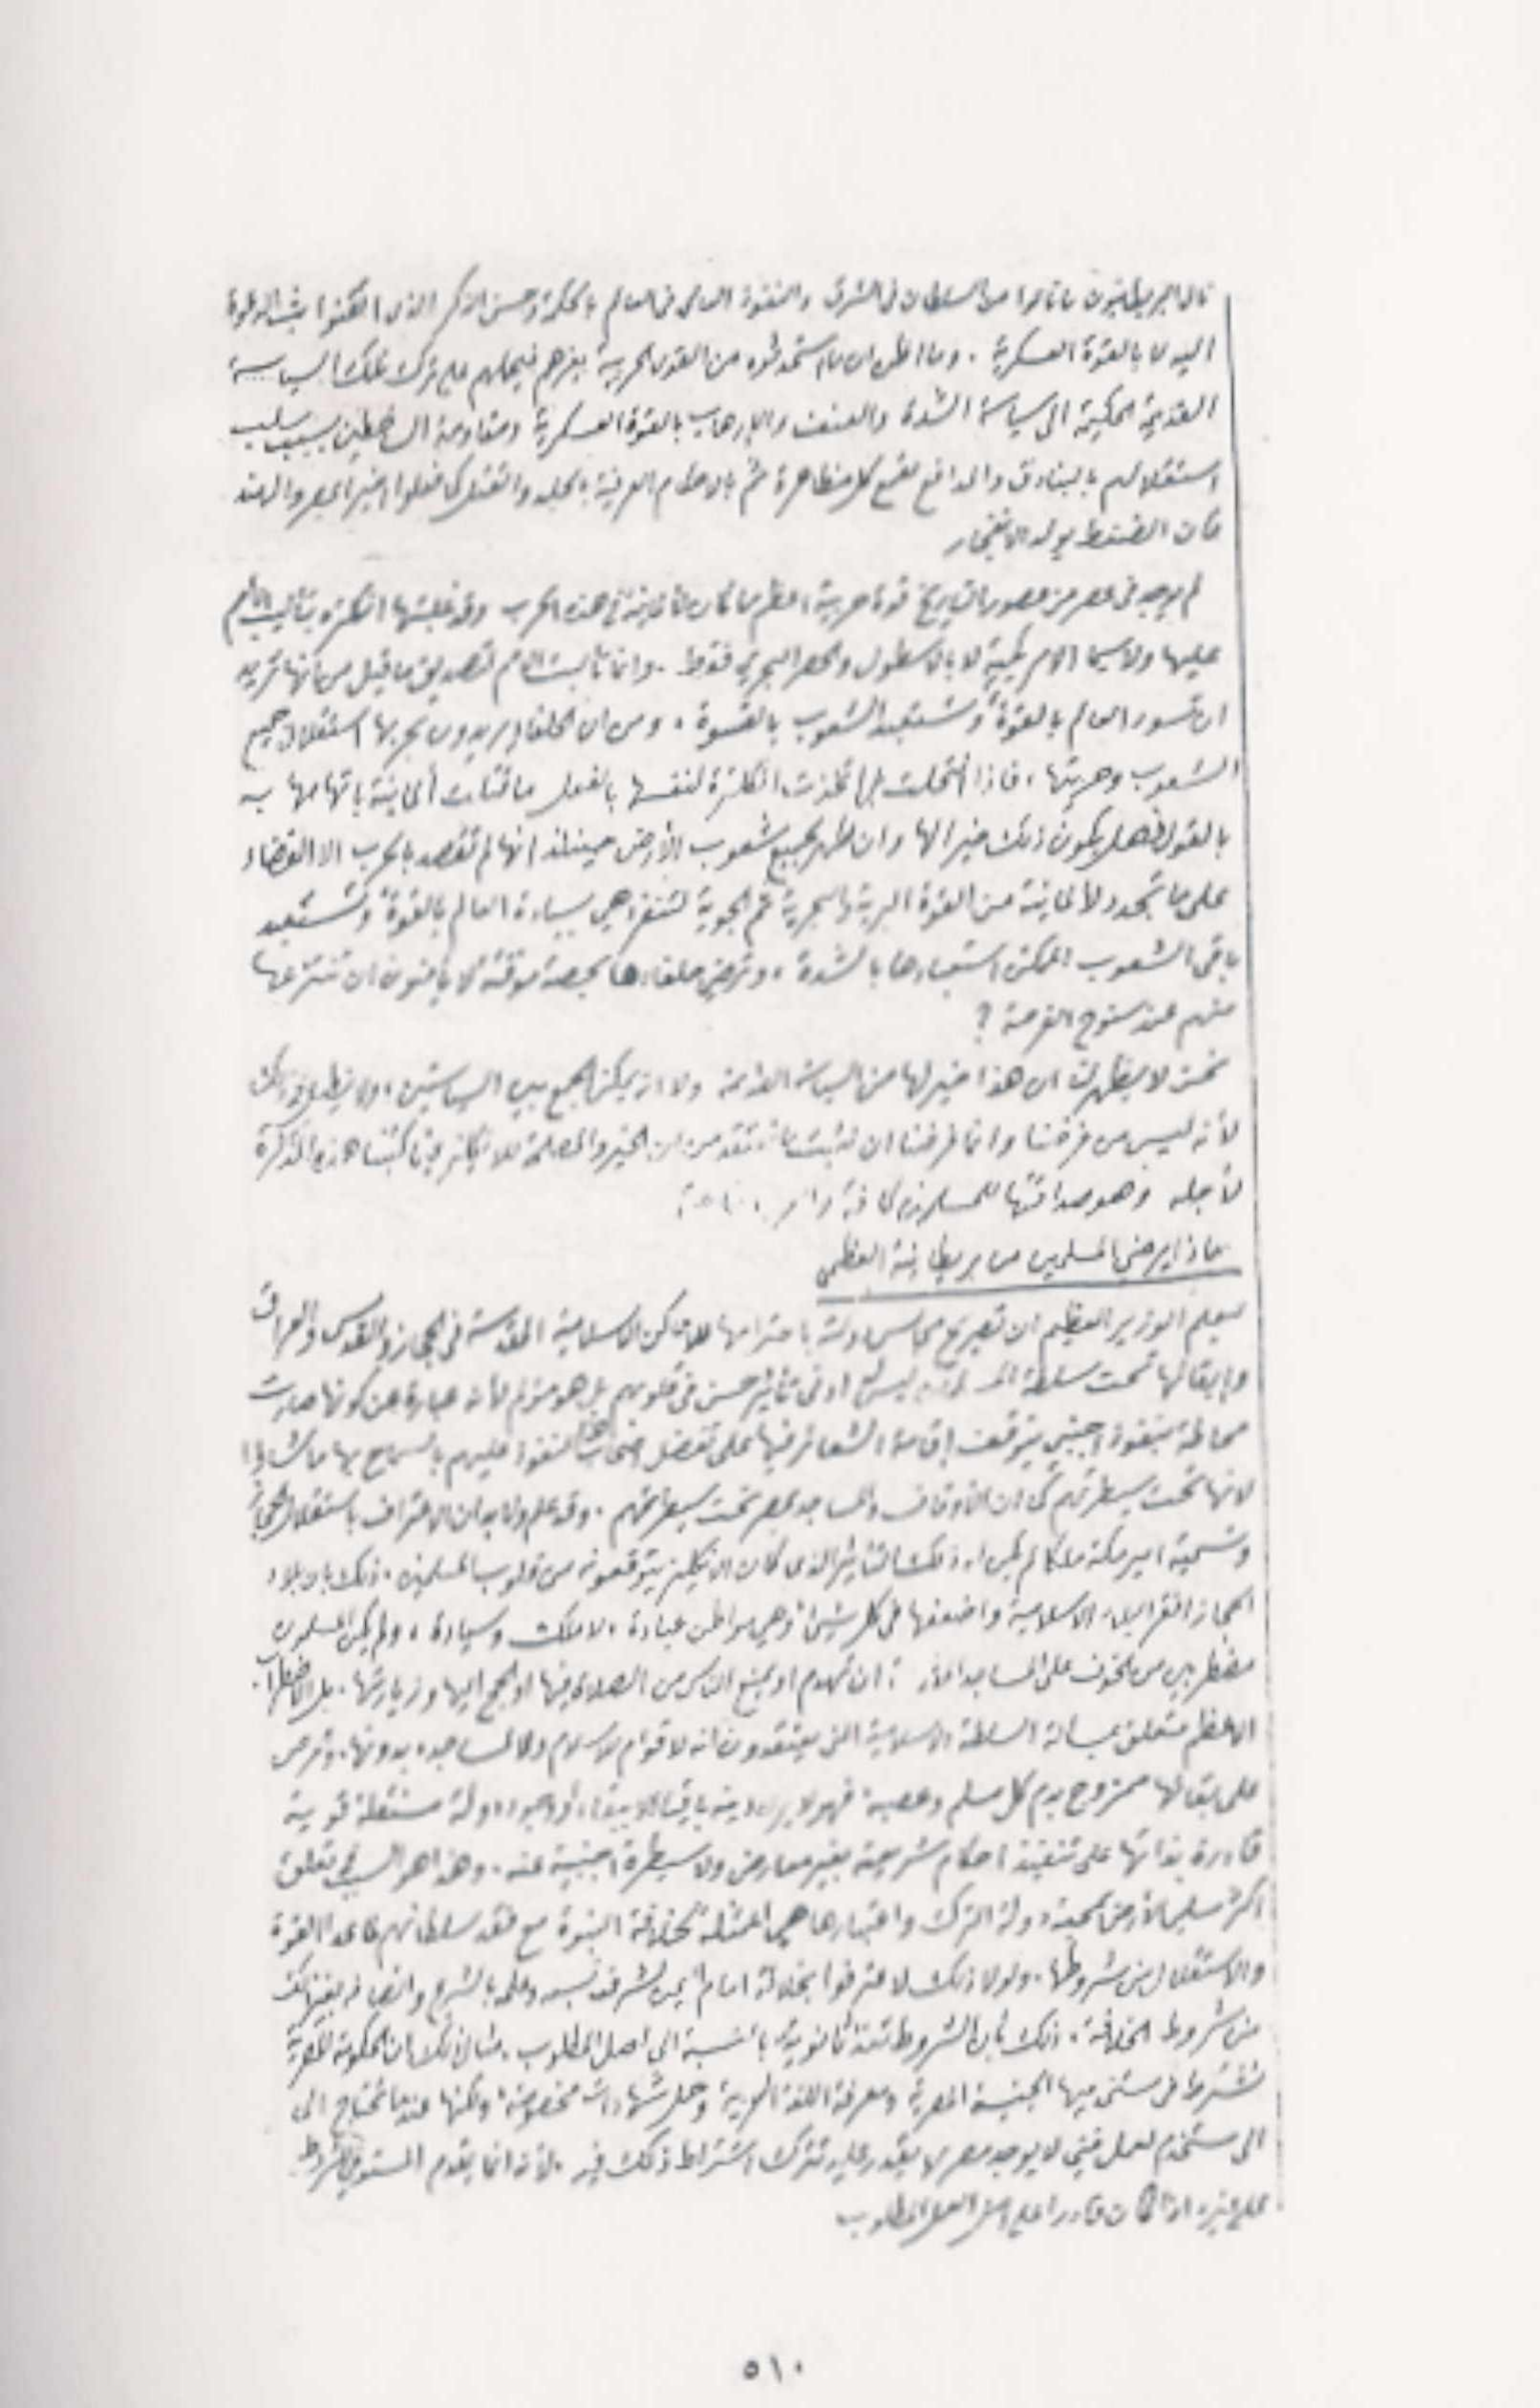 نال البريطانيون ما نالوا من السلطان في الشرق والنفوذ العالي في العالم بالحكمة وحسن الذكر الذي
اليه لا بالقوة العسكرية . وما اظن ان ما استحدثوه من القوى الحربية يغرهم فيحملهم على ترك تلك السياسة
القديمة الحكيمة الى سياسة الشدة والعنف والإرهاب بالقوة العسكرية ومقاومة الساخطين بسبب سلب
استقلالهم بالبنادق والمدافع لقمع كل مظاهرة ثم بالاحكام العرفية بالجلد والقتل كما فعلوا اخيرا بمصر والهند
فان الضغط يولد الانفجار
لم يوجد في عصر من عصور التاريخ قوة حربية اعظم مما كان لألمانية في هذه الحرب وقد غلبتها انكلترة بتأليب الأمم
عليها ولاسيما الامريكية لا بالاسطول والحصر البحري فقط . وانما تألبت الامم لتصديق ما قيل من انها تريد
ان تسود العالم بالقوة وتستعبد الشعوب بالقسوة ، ومن ان الحلفاء يريدون بحربها استقلال جميع
الشعوب وحريتها ، فاذا انتحلت انكلترة لنفسها بالفعل ما قتلت ألمانية باتهامها به
بالقول فهل يكون ذلك خيرا لها وان ظهر لجميع شعوب الأرض حينئذ انها لم تقصد بالحرب الا القضاء
على ما تجدد لألمانية من القوة البرية والبحرية ثم الجوية لتنفرد هي بسيادة العالم بالقوة وتستعبد
باقي الشعوب الممكن استعبادها بالشدة ، وترضي حلفاءها بحصة موقتة لا يأمنون ان تنتزعها
منهم عند سنوح الفرصة ؟
نحن لا يظهر لنا ان هذا خير لها من السياسة القديمة ولا انه يمكن الجمع بين السياستين ، ولا
لأنه ليس من غرضنا وانما غرضنا ان نثبت ما نعتقد من ان الخير والمصلحة للانكليز فيما كتبنا هذه المذكرة
لأجله وهو صداقتها للمسلمين كافة
ماذا يرضي المسلمين من بريطانية العظمى
ليعلم الوزير العظيم ان تصريح مجالس دولته باحترامها للأماكن الاسلامية المقدسة في الحجاز والقدس والعراق
وإبقائها تحت سلطة ليس له ادنى تأثير حسن في قلوبهم بل هو مؤلم لها لأنه عبارة عن كونها صارت
محاطة بنفوذ اجنبي يتوقف إقامة الشعائر فيها على تفضل اصحاب النفوذ عليهم بالسماح بها ما شاءوا
لانها تحت سيطرتهم كما ان الأوقاف والمساجد بمصر تحت سيطرتهم . وقد علم ان الاعتراف باستقلال الحجاز
وتسمية امير مكة ملكا لم يكن له ذلك التأثير الذي كان الانكليز يتوقعونه من قلوب المسلمين ، ذلك بان بلاد
الحجاز افقر البلاد الاسلامية واضعفها في كل شيء وهي مواطن عبادة ، لا ملك وسيادة ، ولم يكن المسلمون
مضطربين من الخوف على المساجد ان تهدم او يمنع الناس من الصلاة فيها او الحج اليها وزيارتها . بل الاضطراب
الاعظم متعلق بمسألة السلطة الاسلامية التي يعتقدون انه لا قوام للاسلام ولا لمساجده بدونها ، والحرص
على بقائها ممزوج بدم كل مسلم وعصبه فهو لا يرى دينه باقيا الا ببقاء او وجود دولة مستقلة قوية
قادرة بذاتها على تنفيذ احكام شريعته بغير معارض ولا سيطرة اجنبية عنه . وهذا هو السبب في تعلق
اكثر مسلمي الأرض بمحبة دولة الترك واعتبارها هي الممثلة لخلافة النبوة مع فقد سلطانهم ما عدا القوة
والاستقلال من شروطها . ولولا ذلك لاعترفوا بخلافة امام اليمن لشرف نسبه وعلمه بالشرع واتصافه بغير ذلك
من شروط الخلافة ، ذلك بأن الشروط تعد ثانوية بالنسبة الى اصل المطلوب . مثال ذلك ان الحكومة المصرية
تشترط في مستخدميها الجنسية المصرية ومعرفة اللغة العربية وحمل شهادات مخصوصة ولكنها عندما تحتاج الى
الى مستخدم لعمل فني لا يوجد مصري يقدر عليه تترك اشتراط ذلك فيه ، لأنه انما يقدم المستوفي للشروط
على غيره اذا كان قادرا على اصل العمل المطلوب
٥١٠